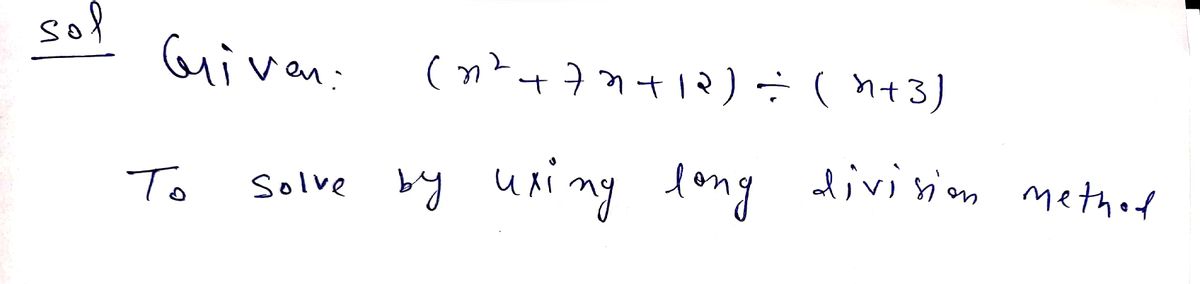 sol
Given: (x² + 7x + 12) ÷ (x+3)
To solve by using long division method